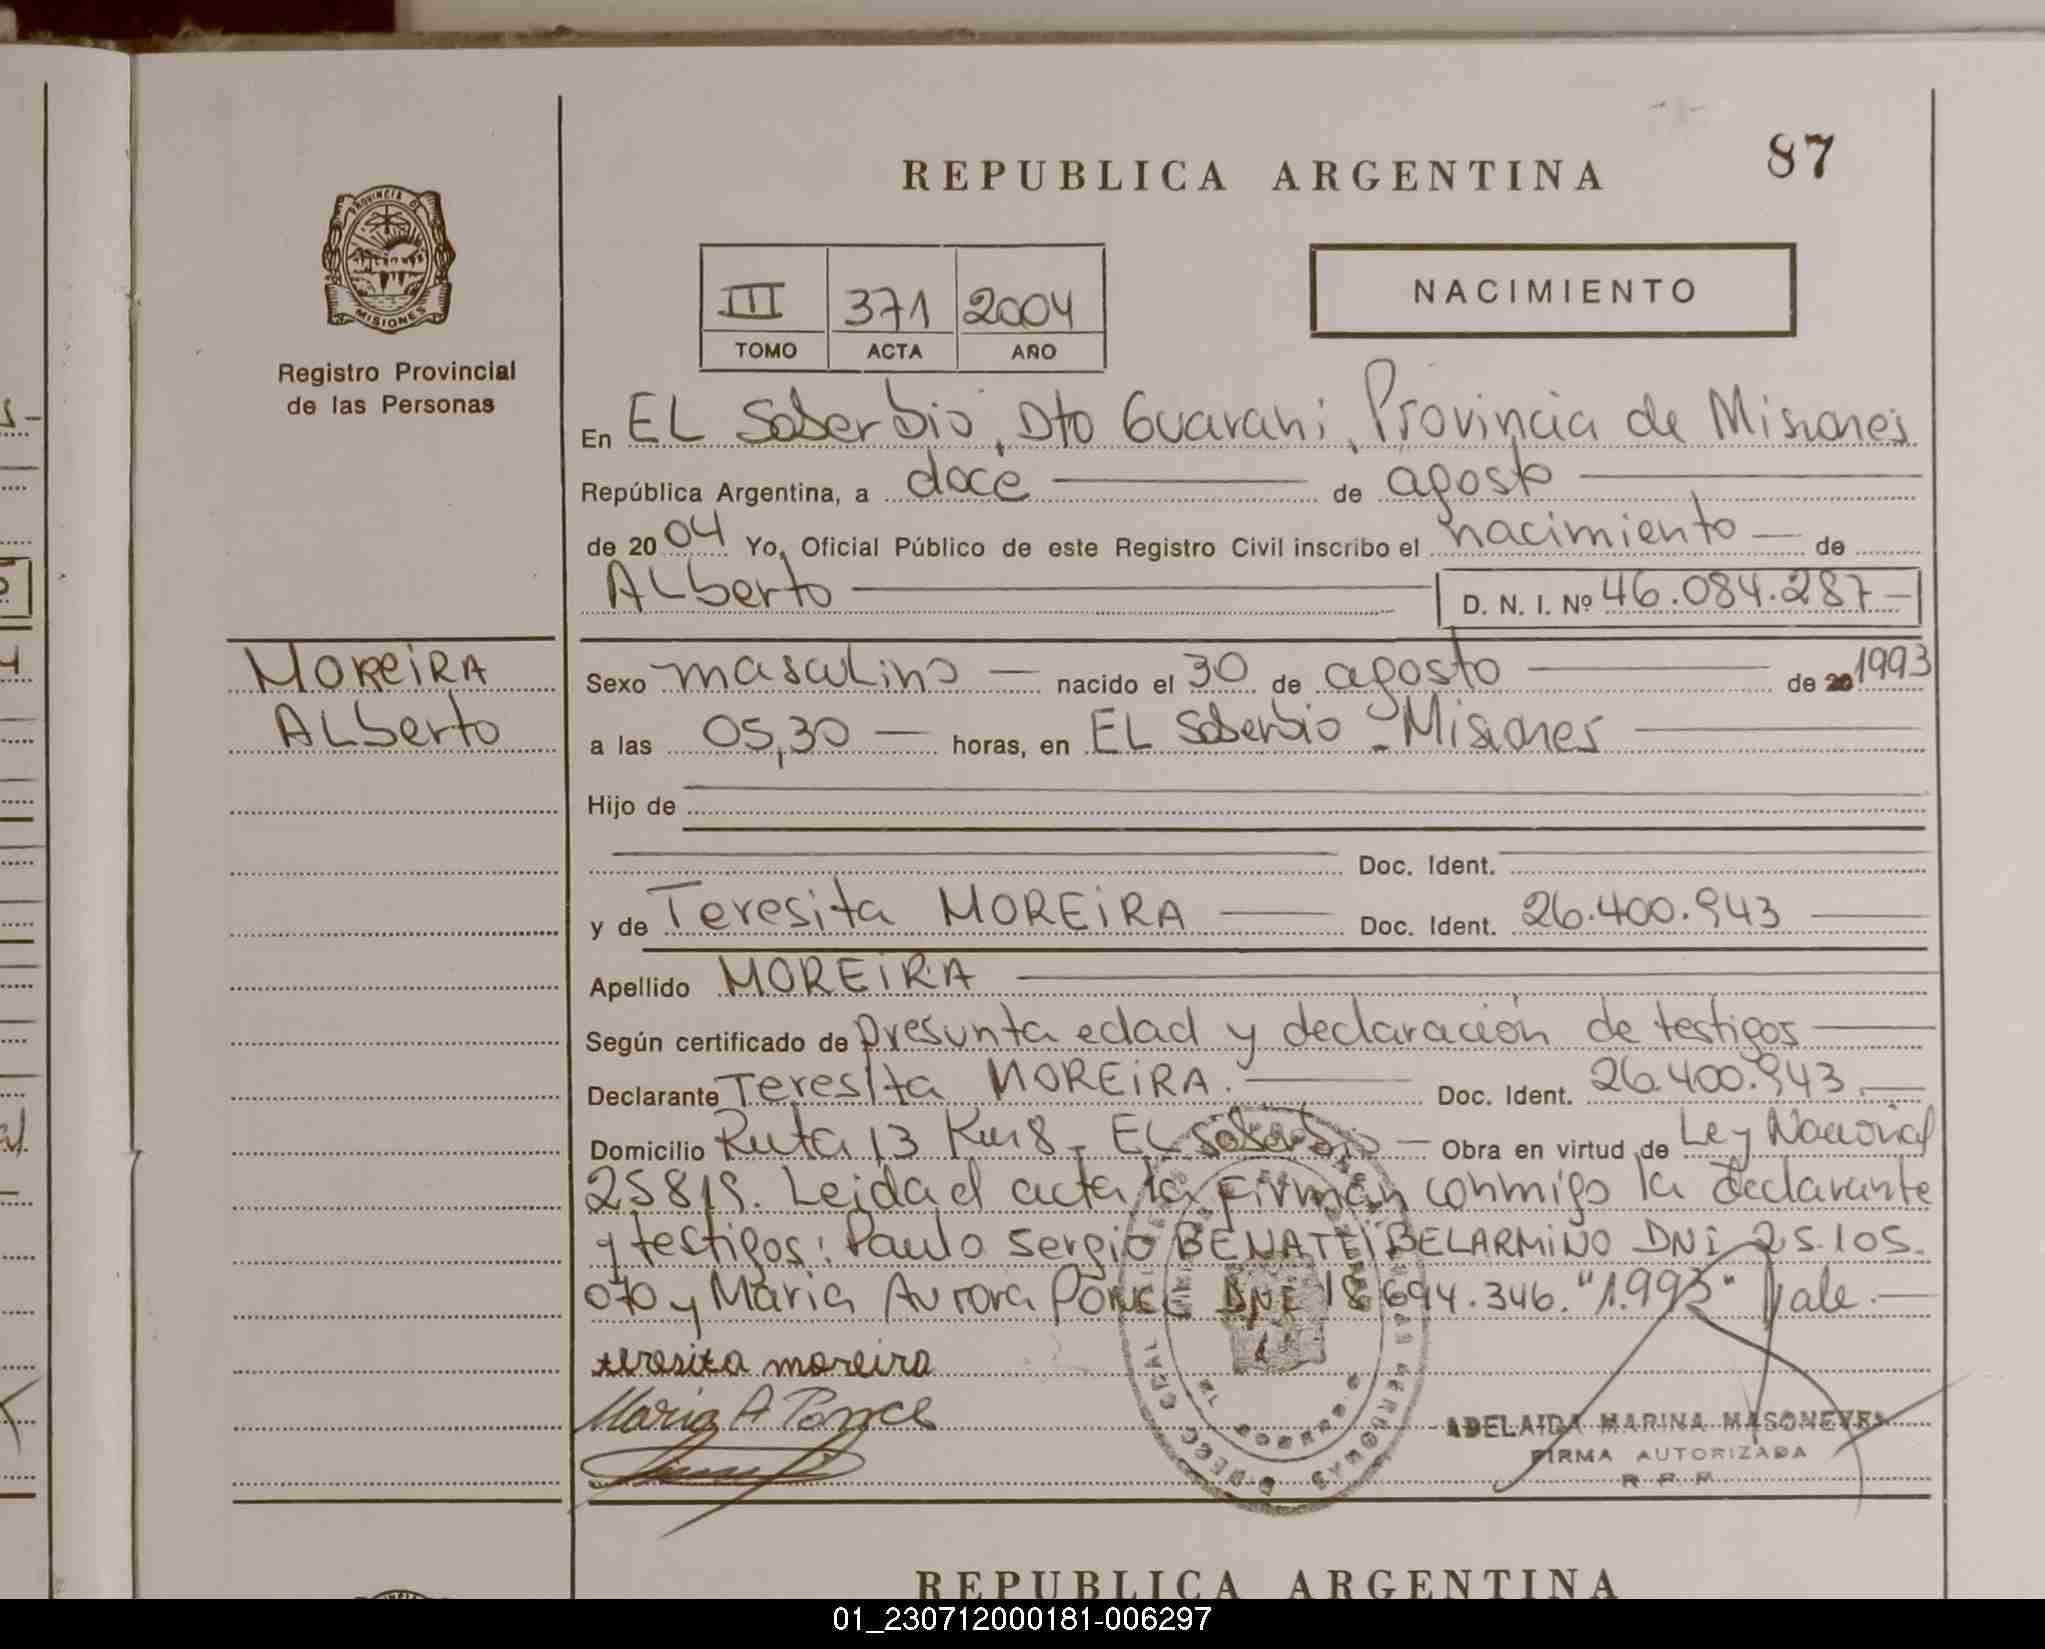 REPUBLICA ARGENTINA
87
PROVINCIA DE
MISIONES
Registro Provincial
de las Personas
III 371 2004
TOMO ACTA AÑO
NACIMIENTO
En EL Soberbio, Dto Guarani, Provincia de Misiones
República Argentina, a doce de agosto
de 2004 Yo, Oficial Público de este Registro Civil inscribo el nacimiento de
Alberto D. N. I. Nº 46.084.287
MOREIRA
Alberto
Sexo masculino nacido el 30 de agosto de 20 1993
a las 05,30 horas, en EL Soberbio - Misiones
Hijo de
Doc. Ident.
y de Teresita MOREIRA Doc. Ident. 26.400.943
Apellido MOREIRA
Según certificado de presunta edad y declaración de testigos
Declarante Teresita MOREIRA. Doc. Ident. 26.400.943.
Domicilio Ruta 13 Km 8 - EL Soberbio Obra en virtud de Ley Nacional
25819. Leida el acta la firman conmigo la declarante
y testigos: Paulo Sergio BENATTI BELARMINO DNI 25.105.
070 y Maria Aurora Ponce DNI 18.694.346. "1.993" Vale.
teresita moreira
Maria A Ponce
ADELAIDA MARINA MASONEVES
FIRMA AUTORIZADA
R.P.P.
REPUBLICA ARGENTINA
01_230712000181-006297